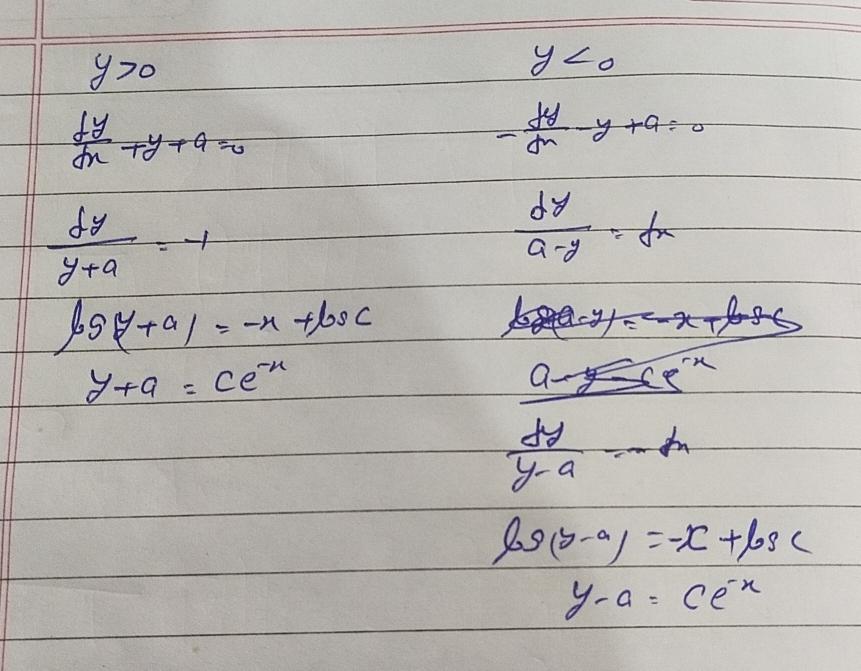 y>0
dy/dx + y + a = 0
dy/(y+a) = -1
log(y+a) = -x + log c
y+a = ce^-x
y<0
- dy/dx - y + a = 0
dy/(a-y) = dx
log(a-y) = -x + log c
a-y = ce^-x
dy/(y-a) = - dx
log(y-a) = -x + log c
y-a = ce^-x